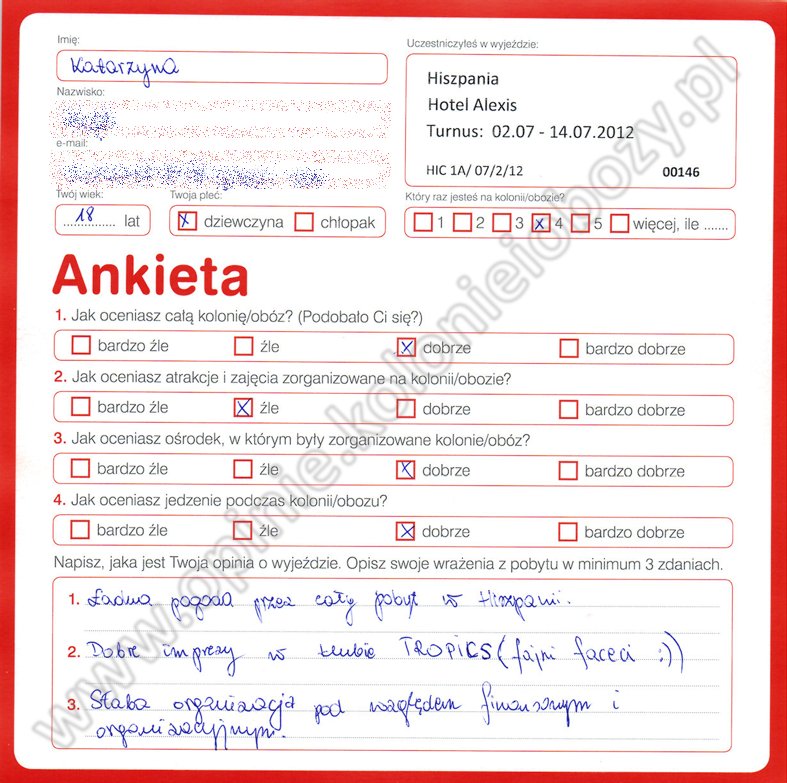 Imię:
Katarzyna
Nazwisko:
e-mail:
Twój wiek:
18 lat
Twoja płeć:
x dziewczyna chłopak
Uczestniczyłeś w wyjeździe:
Hiszpania
Hotel Alexis
Turnus: 02.07 - 14.07.2012
HIC 1A/ 07/2/12 00146
Który raz jesteś na kolonii/obozie?
1 2 3 x 4 5 więcej, ile .......
Ankieta
1. Jak oceniasz całą kolonię/obóz? (Podobało Ci się?)
bardzo źle źle x dobrze bardzo dobrze
2. Jak oceniasz atrakcje i zajęcia zorganizowane na kolonii/obozie?
bardzo źle x źle dobrze bardzo dobrze
3. Jak oceniasz ośrodek, w którym były zorganizowane kolonie/obóz?
bardzo źle źle x dobrze bardzo dobrze
4. Jak oceniasz jedzenie podczas kolonii/obozu?
bardzo źle źle x dobrze bardzo dobrze
Napisz, jaka jest Twoja opinia o wyjeździe. Opisz swoje wrażenia z pobytu w minimum 3 zdaniach.
1. Ładna pogoda przez cały pobyt w Hiszpani.
2. Dobre imprezy w klubie TROPICS (fajni faceci :))
3. Słaba organizacja pod względem finansowym i
organizacyjnym.
www.opinie.kolonieiobozy.pl